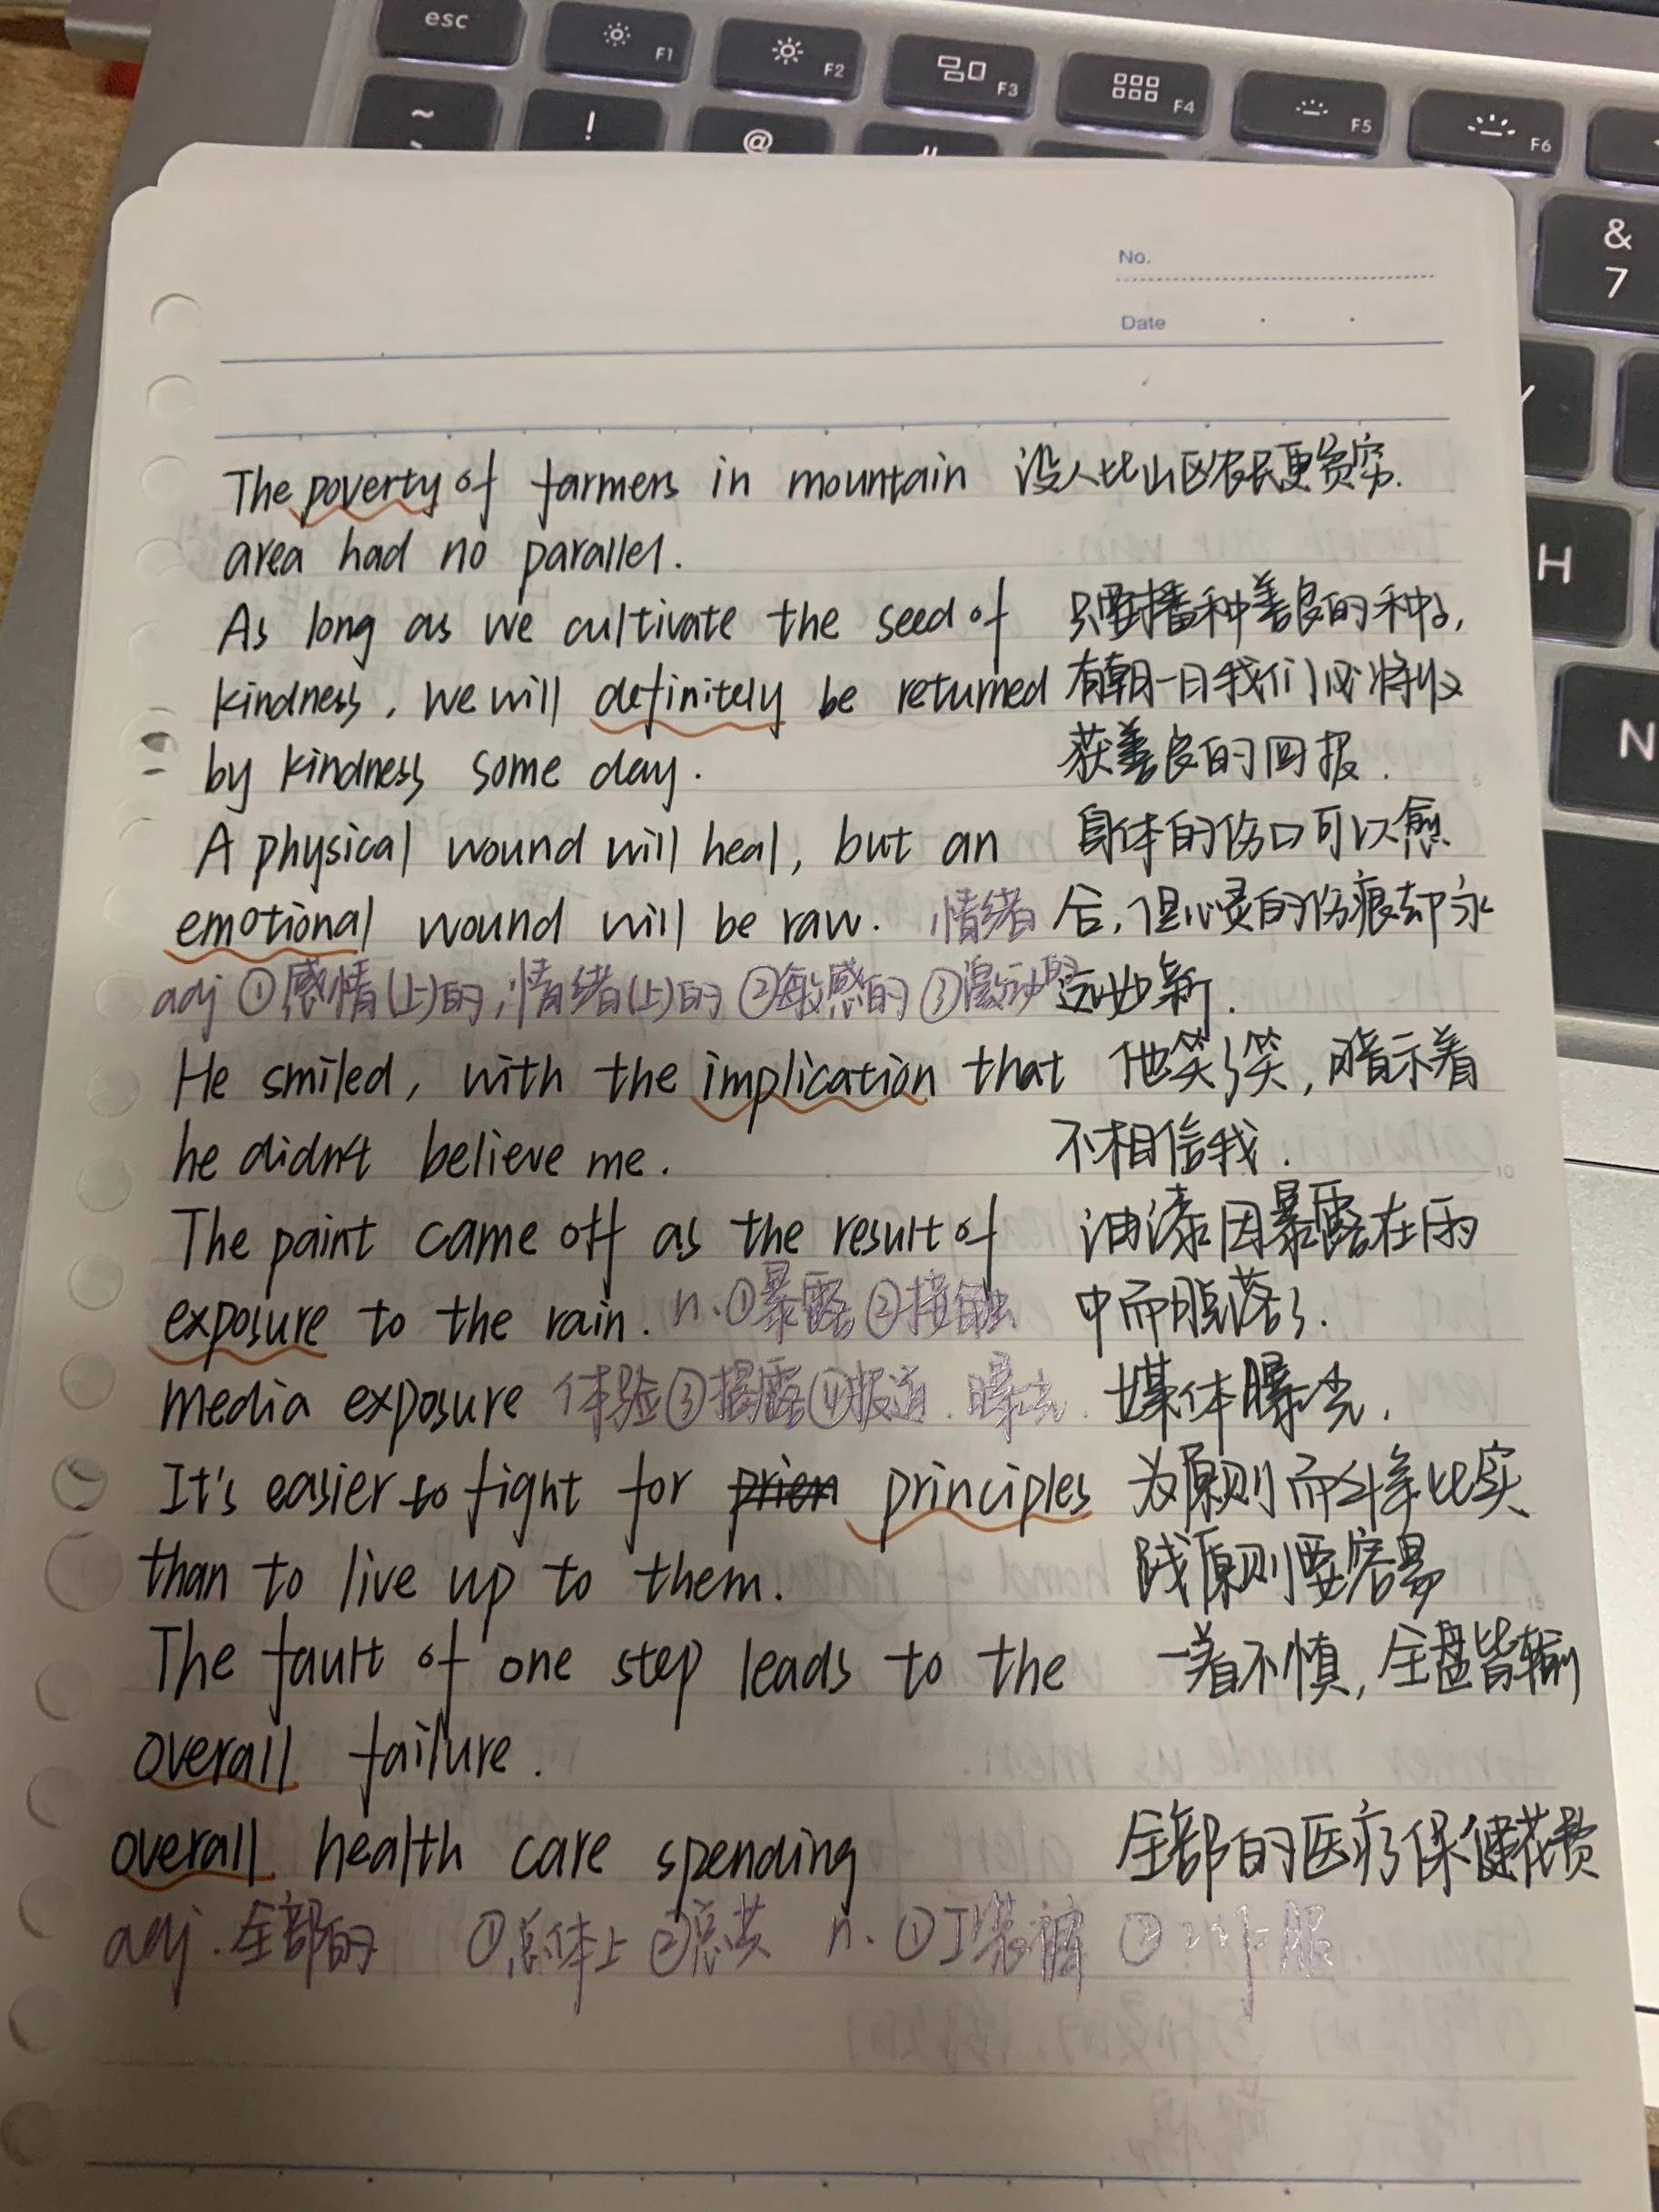 esc F1 F2 F3 F4 F5 F6
~ ! @
& 7
No.
Date
H
N
The poverty of farmers in mountain 没人比山区农民更贫穷.
area had no parallel.
As long as we cultivate the seed of 只要播种善良的种子,
kindness, we will definitely be returned 有朝一日我们必将收
by kindness some day. 获善良的回报.
A physical wound will heal, but an 身体的伤口可以愈
emotional wound will be raw. 情绪 合,但心灵的伤痕却永
adj ①感情(上)的,情绪(上)的 ②敏感的 ③激动的 远如新.
He smiled, with the implication that 他笑了笑,暗示着
he didn't believe me. 不相信我.
The paint came off as the result of 油漆因暴露在雨
exposure to the rain. n.①暴露 ②接触 中而脱落了.
media exposure 体验③揭露④报道.曝光. 媒体曝光.
It's easier to fight for prien principles 为原则而斗争比实
than to live up to them. 践原则要容易
The fault of one step leads to the 一着不慎,全盘皆输
overall failure.
overall health care spending 全部的医疗保健花费
adj.全部的 ①总体上 ②总共 n.①工装裤 ② 服